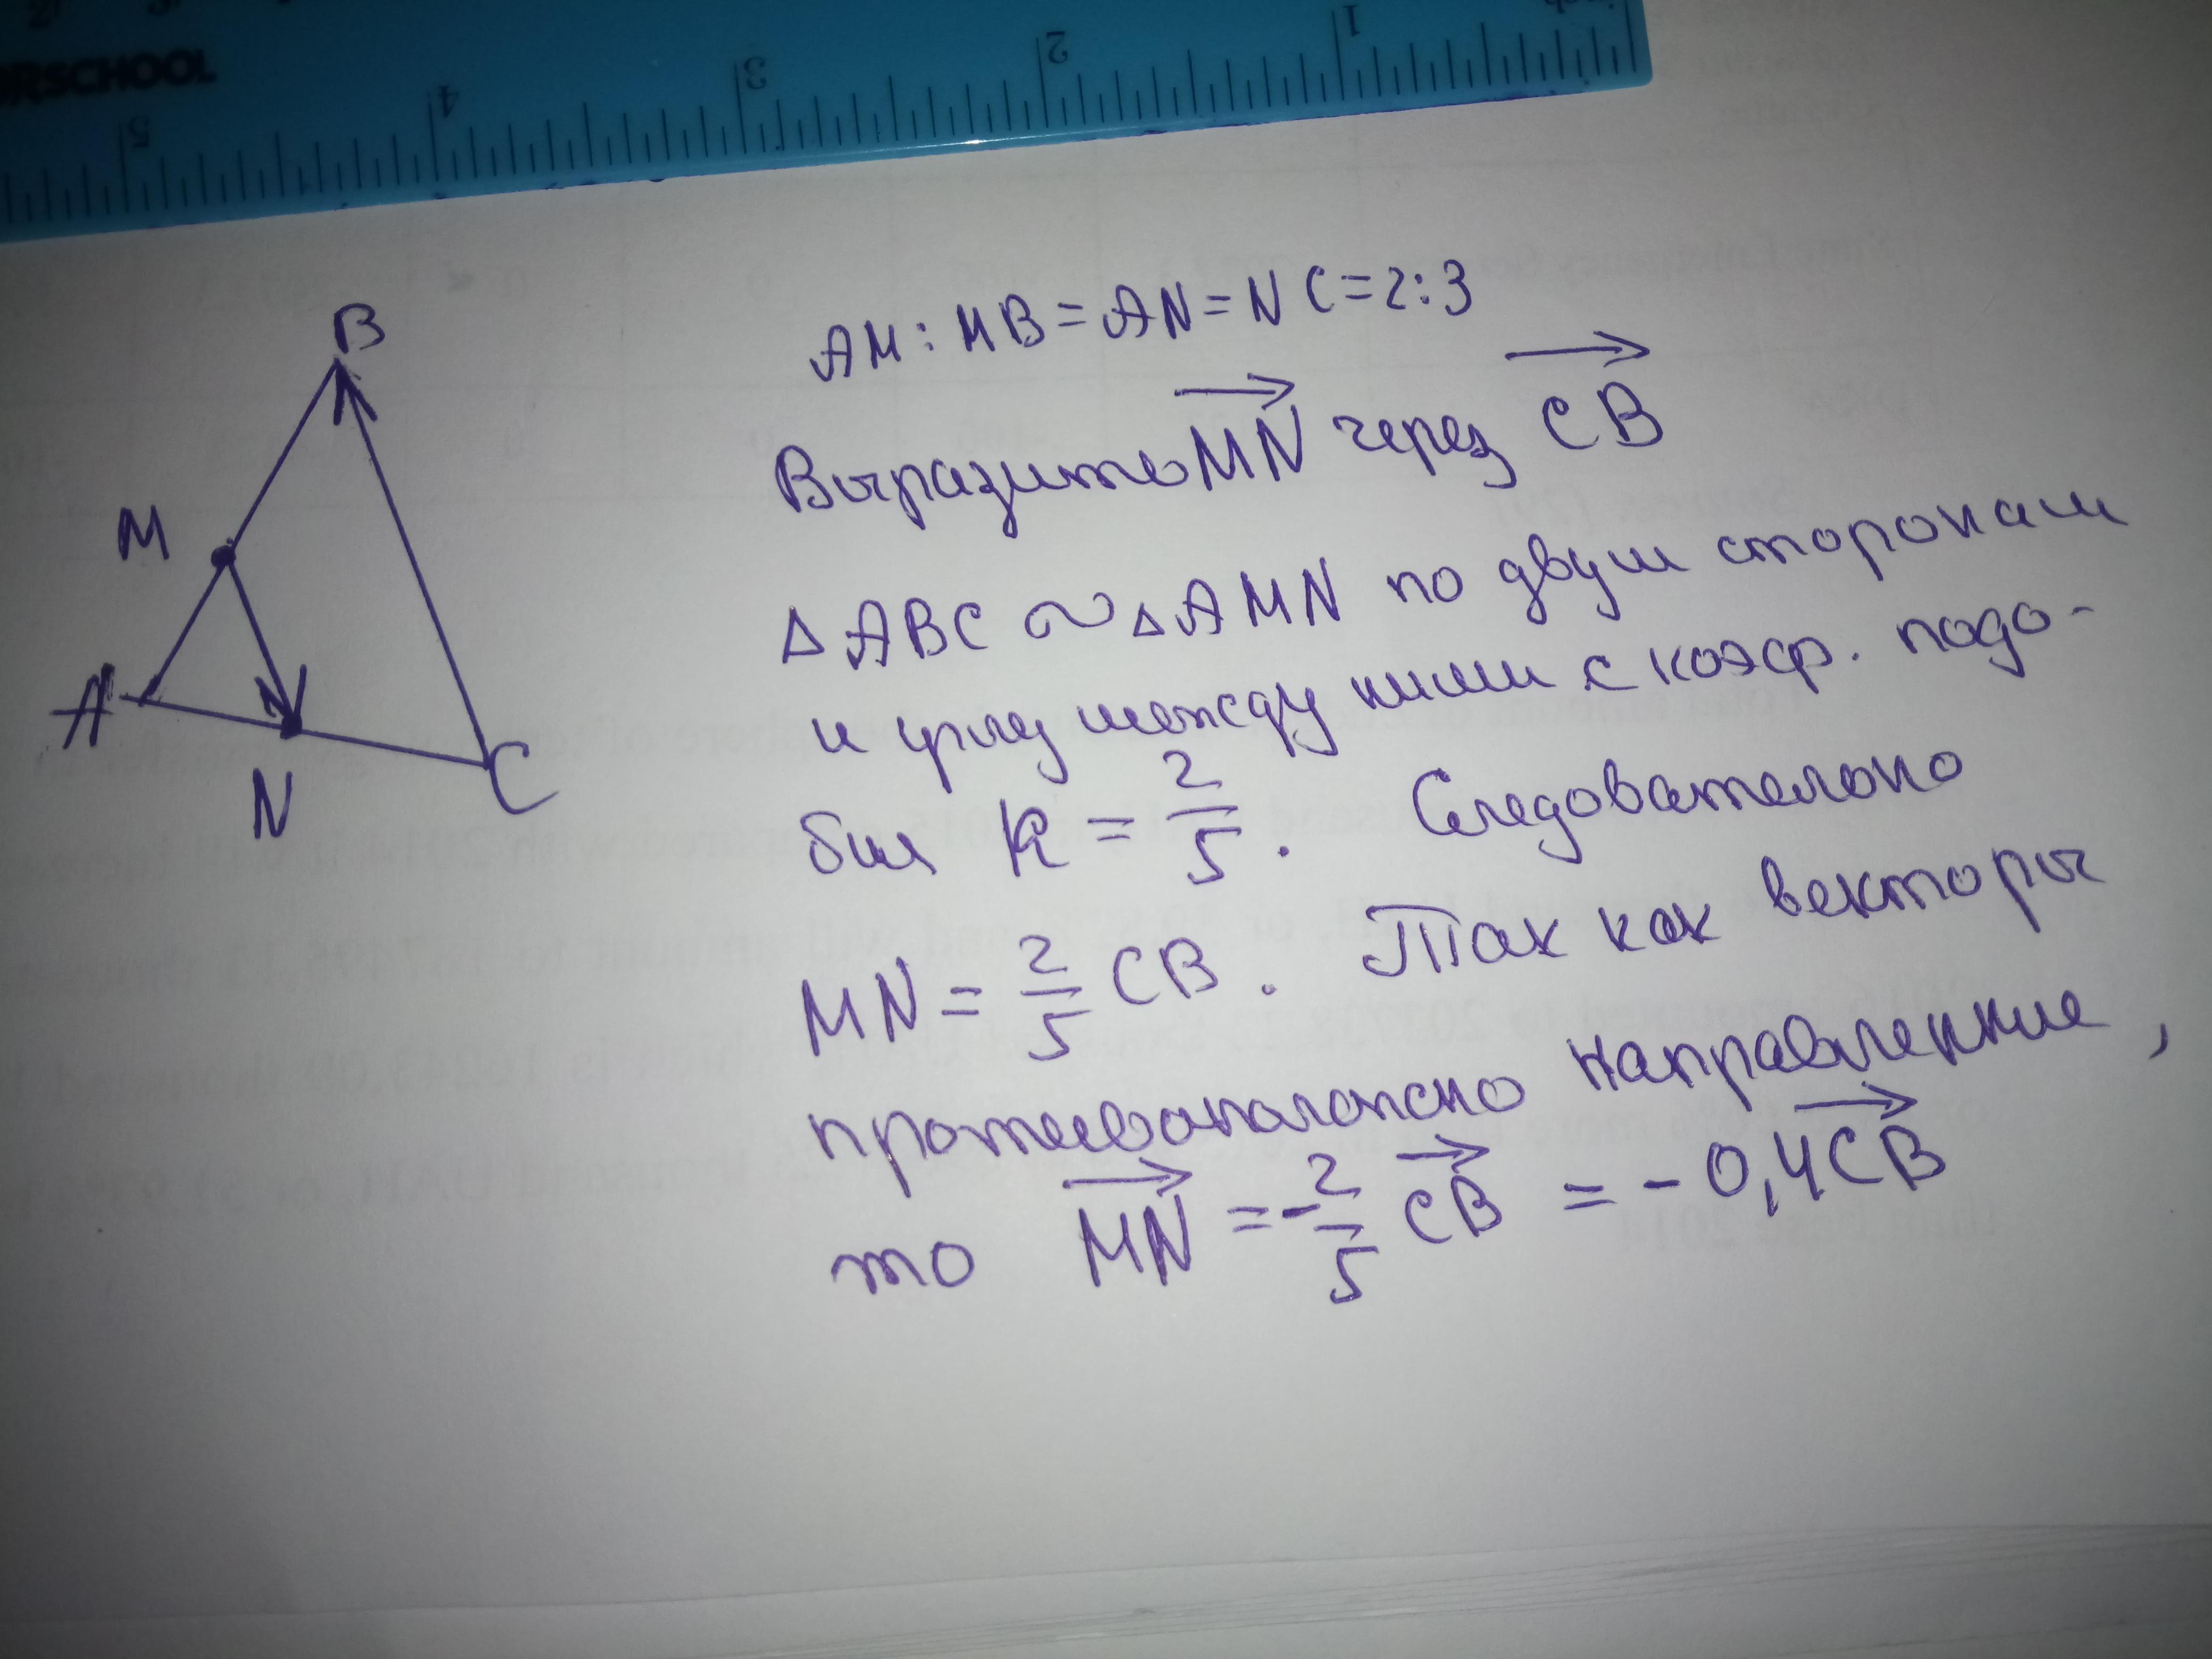 RSCHOOL
5 4 3 2 1 inch
B
M
A
N
C
AM : MB = AN = NC = 2:3
Выразить MN через CB
△ABC ~ △AMN по двум сторонам
и углу между ними с коэф. подо-
бия k = 2/5 . Следовательно
MN = 2/5 CB . Так как векторы
противоположно направленные ,
то MN = -2/5 CB = -0,4CB